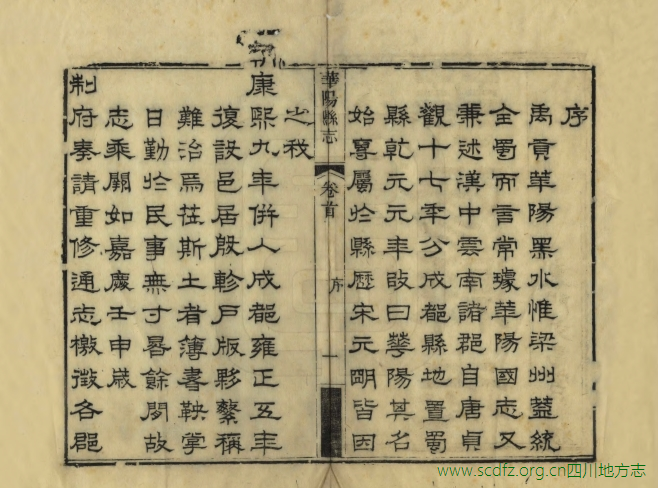 序
禹貢華陽黑水惟梁州蓋統
全蜀而言常璩華陽國志又
兼述漢中雲南諸郡自唐貞
觀十七年分成都縣地置蜀
縣乾元元年改曰華陽其名
始專屬於縣歷宋元明皆因
華陽縣志
卷首
序
一
之我
康熙九年併入成都雍正五年
復設邑居殷軫戶版夥繁稱
難治焉莅斯土者簿書鞅掌
日勤於民事無寸晷餘閒故
志乘闕如嘉慶壬申歲
制府奏請重修通志檄徵各郡
www.scdfz.org.cn四川地方志